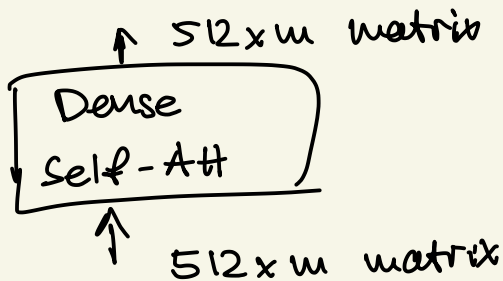 512 x m matrix
Dense
Self-Att
512 x m matrix